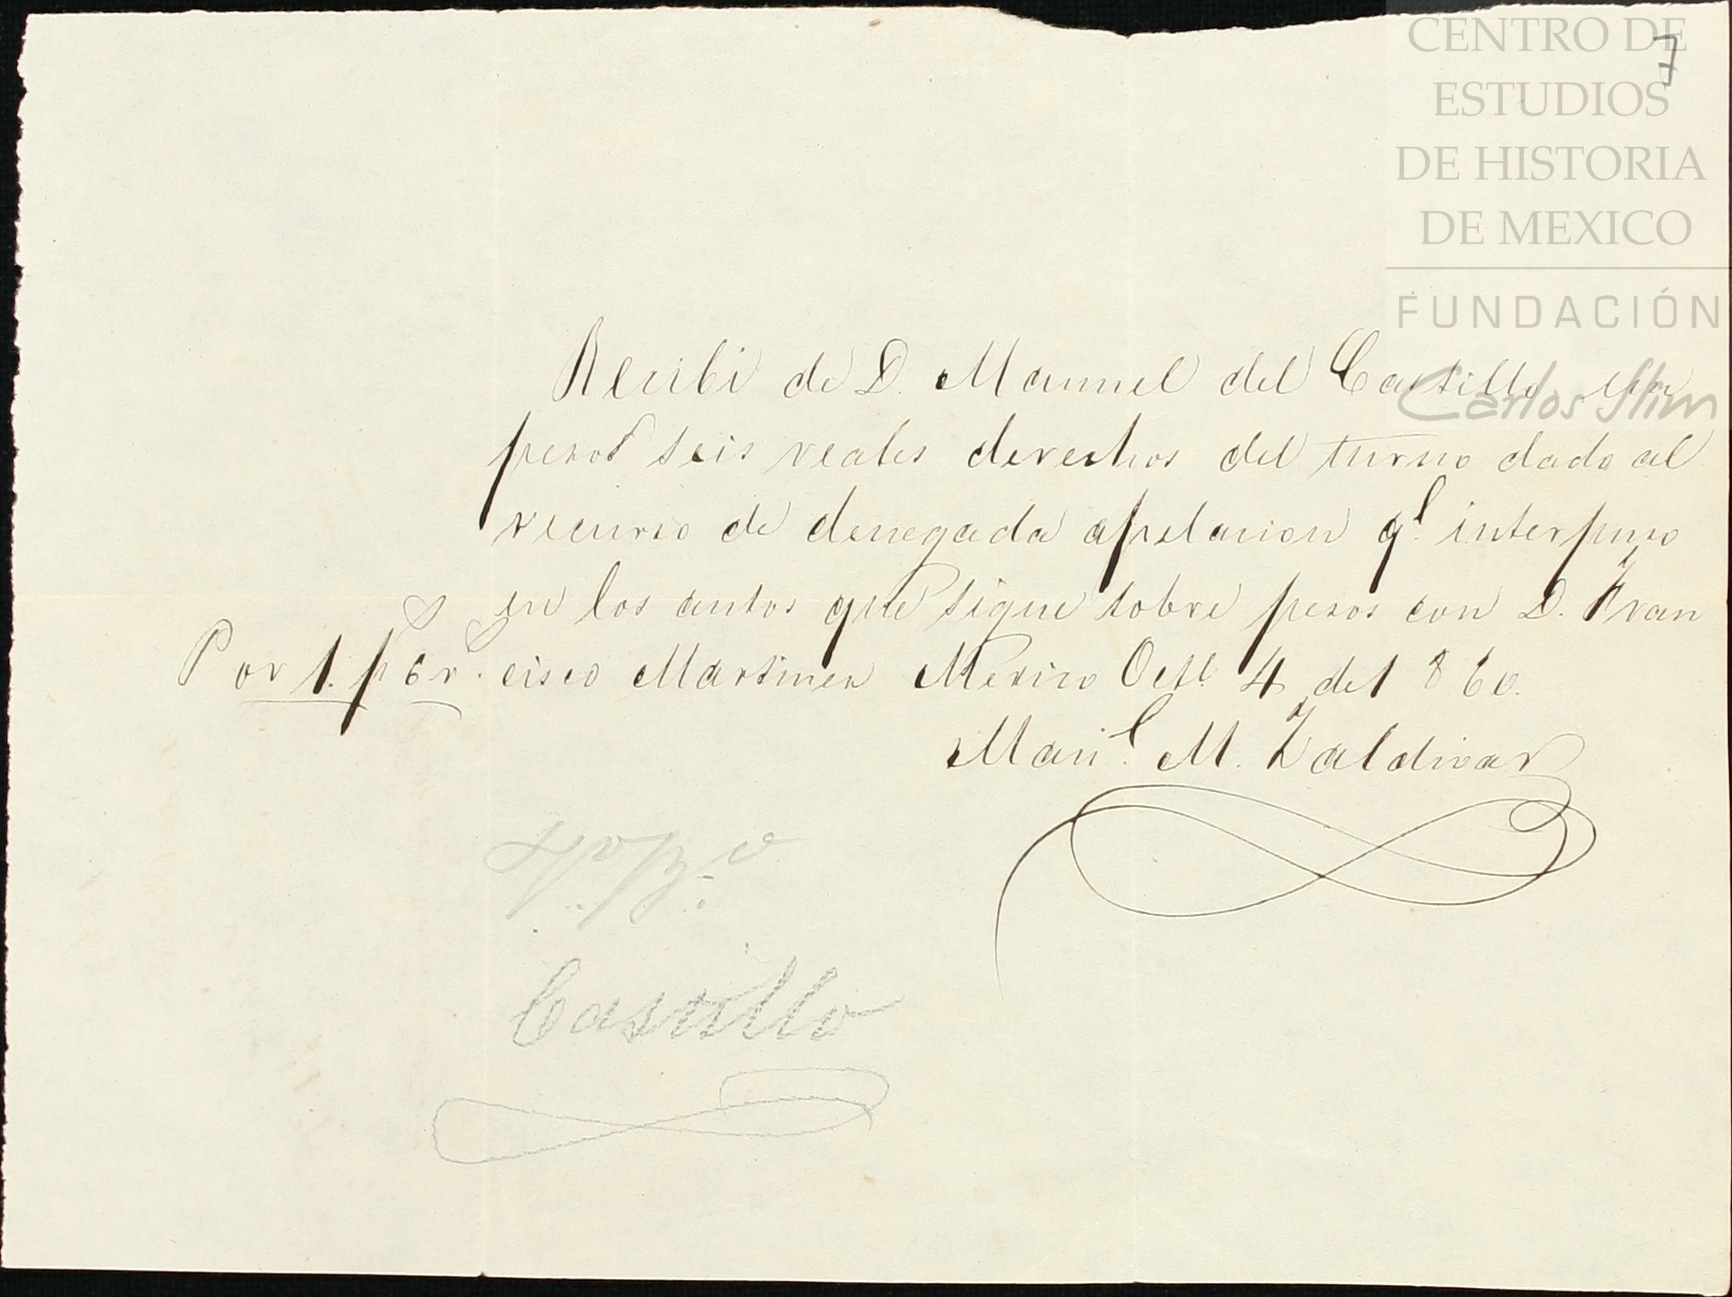 CENTRO DE
ESTUDIOS
DE HISTORIA
DE MEXICO
FUNDACIÓN
Carlos Slim
7
Recibi de D. Manuel del Castillo un
pesos seis reales derechos del turno dado al
recurso de denegada apelacion q.e interpuso
en los autos que sigue sobre pesos con D. Fran
Por 1. p.s 6 r.s cisco Martinez Mexico Oct.e 4 de 1860.
Man.l M. Zaldivar
Castillo